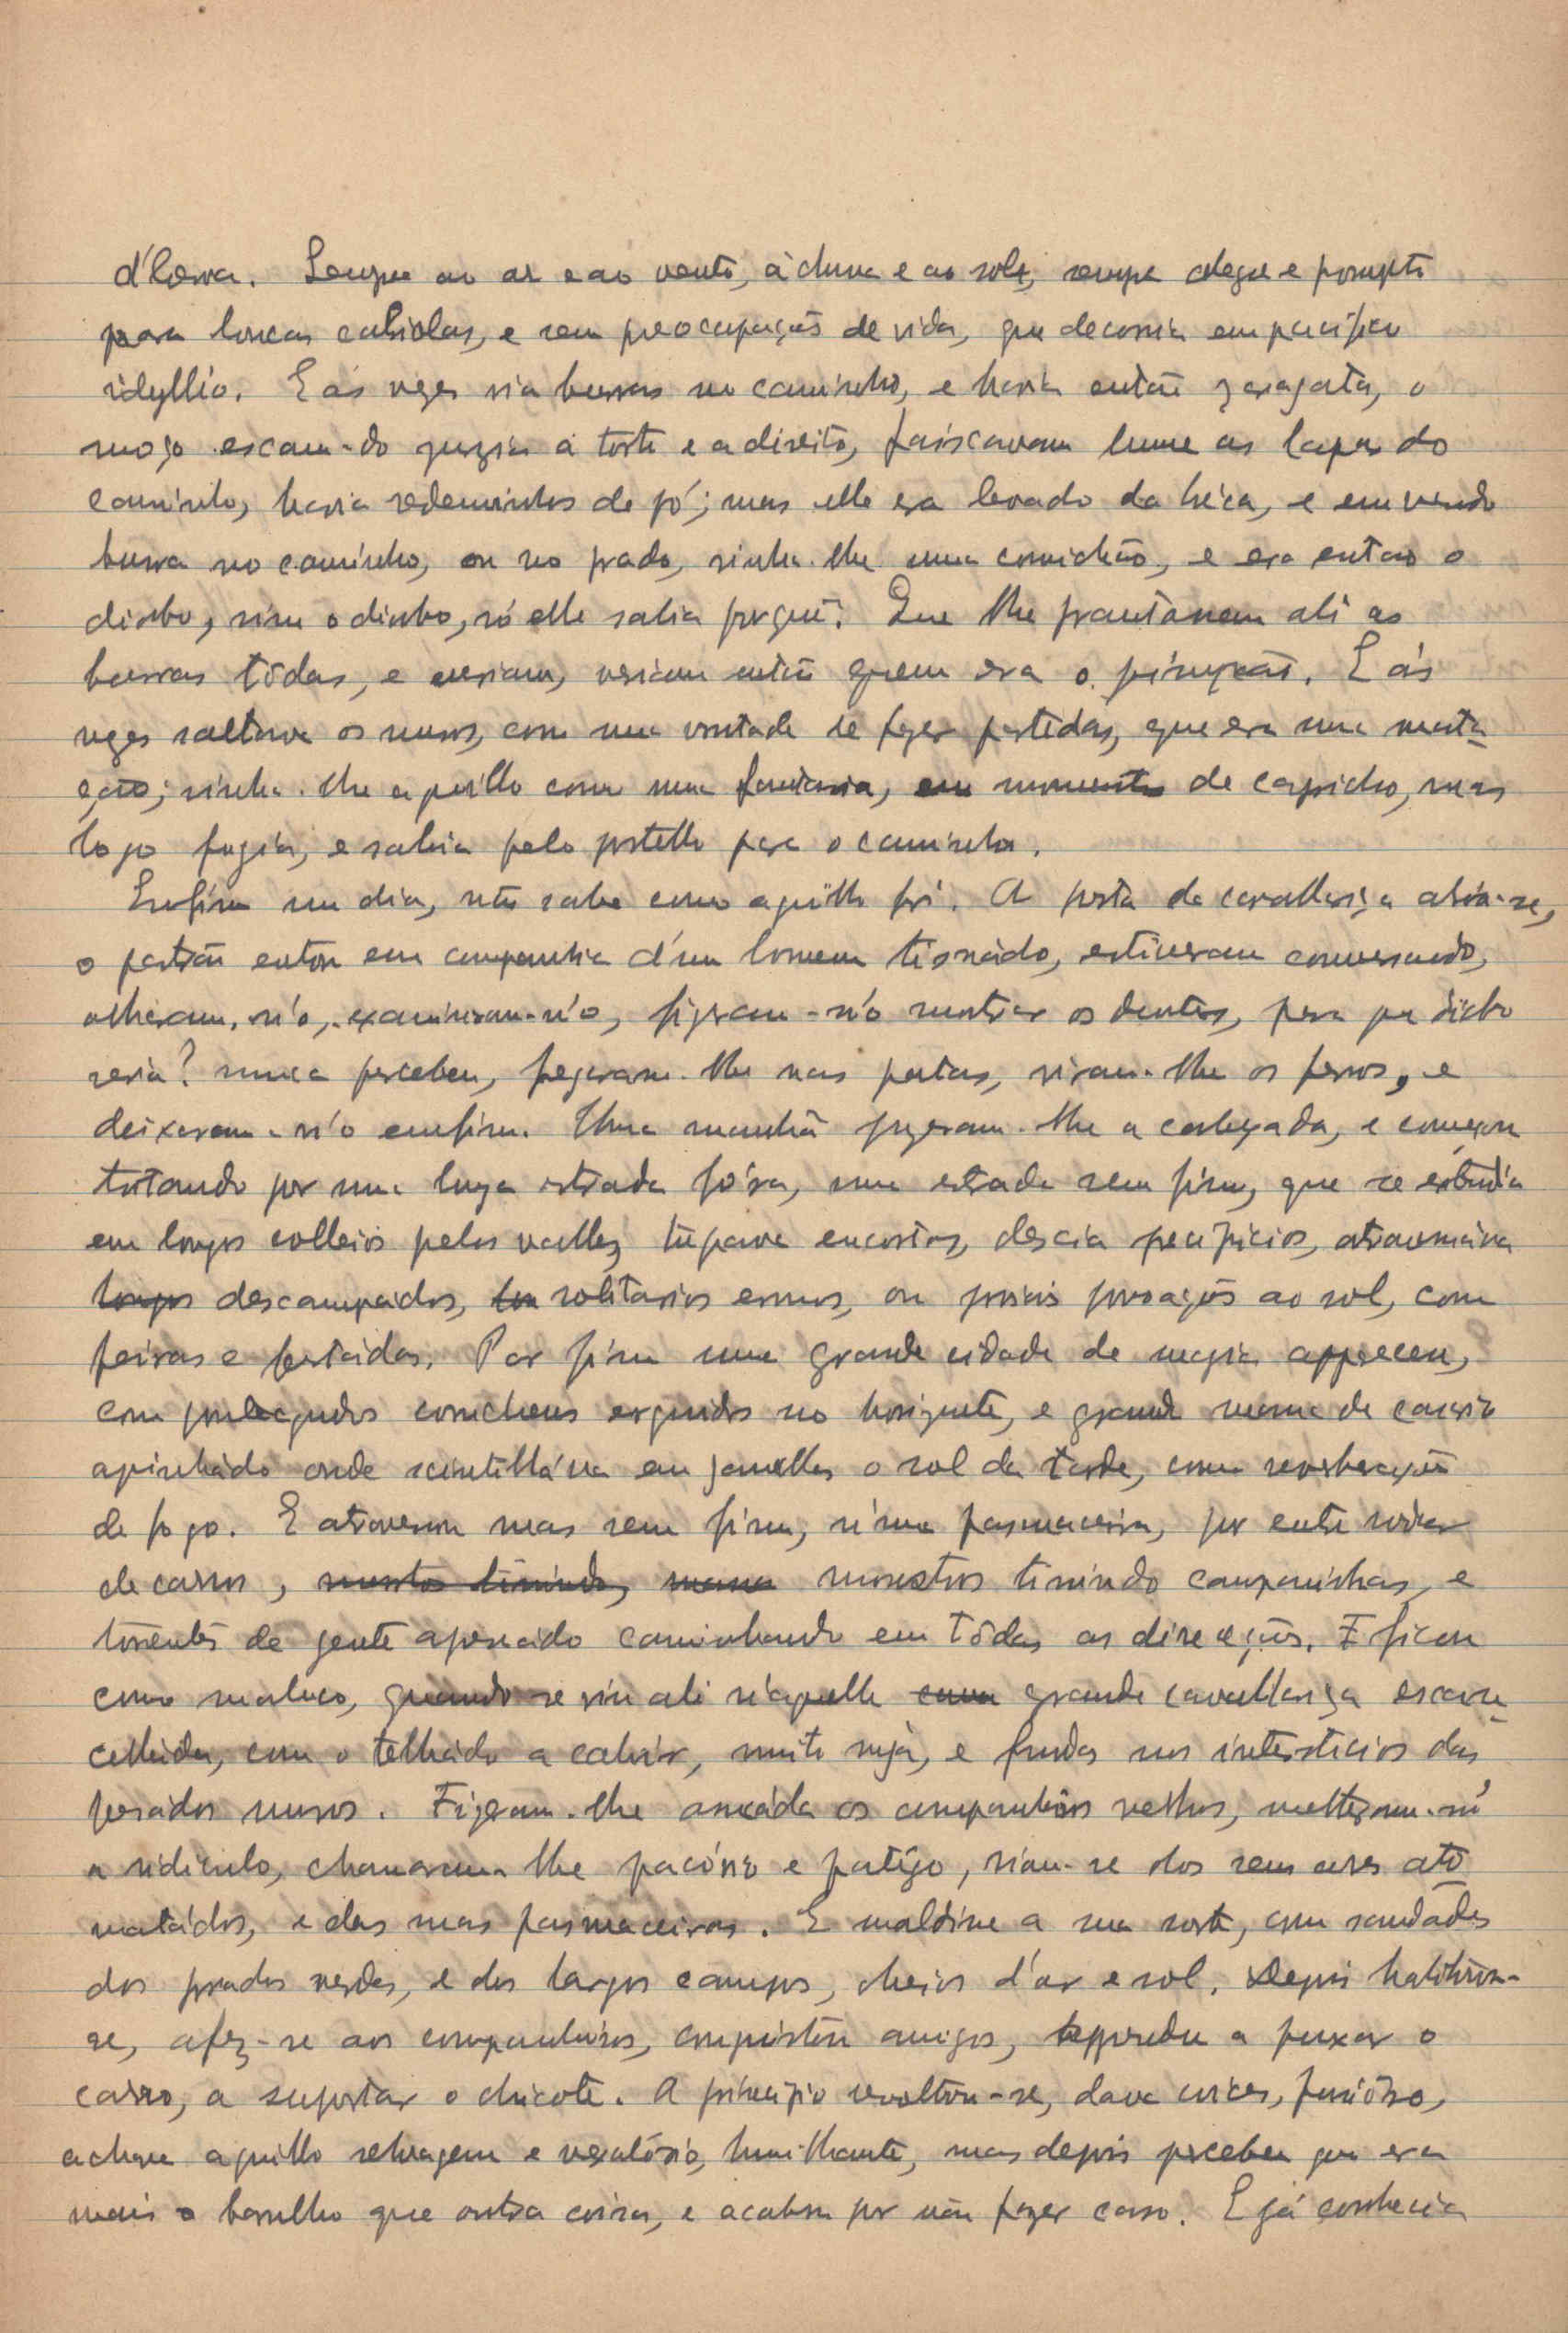 d'herva. Sempre ao ar e ao vento, à chuva e ao sol, sempre alegre e prompto
para loucas cabriolas, e sem preocupações de vida, que decorria em pacifico
idyllio. E ás vezes via burras no caminho, e havia então zaragata, o
moço escam-do zurzia a torto e a direito, faiscavam lume as lapas do
caminho, havia redemoinhos de pó; mas elle era levado da bréca, e em vendo
burra no caminho, ou no prado, vinha-lhe uma comichão, e era entao o
diabo, sim o diabo, só elle sabia porquê. Que lhe prantassem ali as
burras tôdas, e veriam, veriam então quem era o pimpão. E ás
vezes saltava os muros, com uma vontade de fazer partidas, que era uma tenta
ção; vinha-lhe aquillo como uma fantasia, momento de capricho, mas
logo fugia, e sahia pelo portello para o caminho.
Emfim um dia, não sabe como aquillo foi. A porta da cavallariça abriu-se,
o patrão entrou em companhia d'um homem tisnado, estiveram conversando,
olharam-n'o, examinaram-n'o, fizeram-n'o mostrar os dentes, para que diabo
seria? nunca percebeu, pegaram-lhe nas patas, viram-lhe os ferros, e
deixaram-n'o emfim. Uma manhã puzeram-lhe a cabeçada, e começou
trotando por uma longa estrada fóra, uma estrada sem fim, que se estendia
em longos colleios pelos valles, trepava encostas, descia precipicios, atravessava
longos descampados, solitarios ermos, ou povoações ao sol, com
feiras e pastadas. Por fim uma grande cidade de magia appareceu,
com ponteagudos corucheus erguidos no horizonte, e grande massa de casario
apinhádo onde scintilláva em janellas o sol da tarde, como reverberação
de fogo. E atravessou ruas sem fim, n'uma pasmaceira, por entre rodar
de carros, muitos tinindo, monstros tinindo campainhas, e
torrentes de gente apressado caminhando em tôdas as direcções. E ficou
como maluco, quando se viu ali n'aquella grande cavallariça escan
cellada, com o telhádo a cahir, muito suja, e fendas nos intersticios dos
pesados muros. Fizeram-lhe assuáda os companheiros velhos, metteram-n'o
a ridiculo, chamaram-lhe pacóvio e patêgo, riam-se dos seus ares ato
matádos, e das suas pasmaceiras. E maldisse a sua sorte, com saudades
dos prados verdes, e dos largos campos, cheios d'ar e sol. Depois habituou-
se, afez-se aos companheiros, conquistou amigos, apprendeu a puxar o
carro, a suportar o chicote. A principio revoltou-se, dava coices, furiôso,
achava aquillo selvagem e vexatório, humilhante, mas depois percebeu que era
mais o barulho que outra coisa, e acabou por não fazer caso. E já conhecia